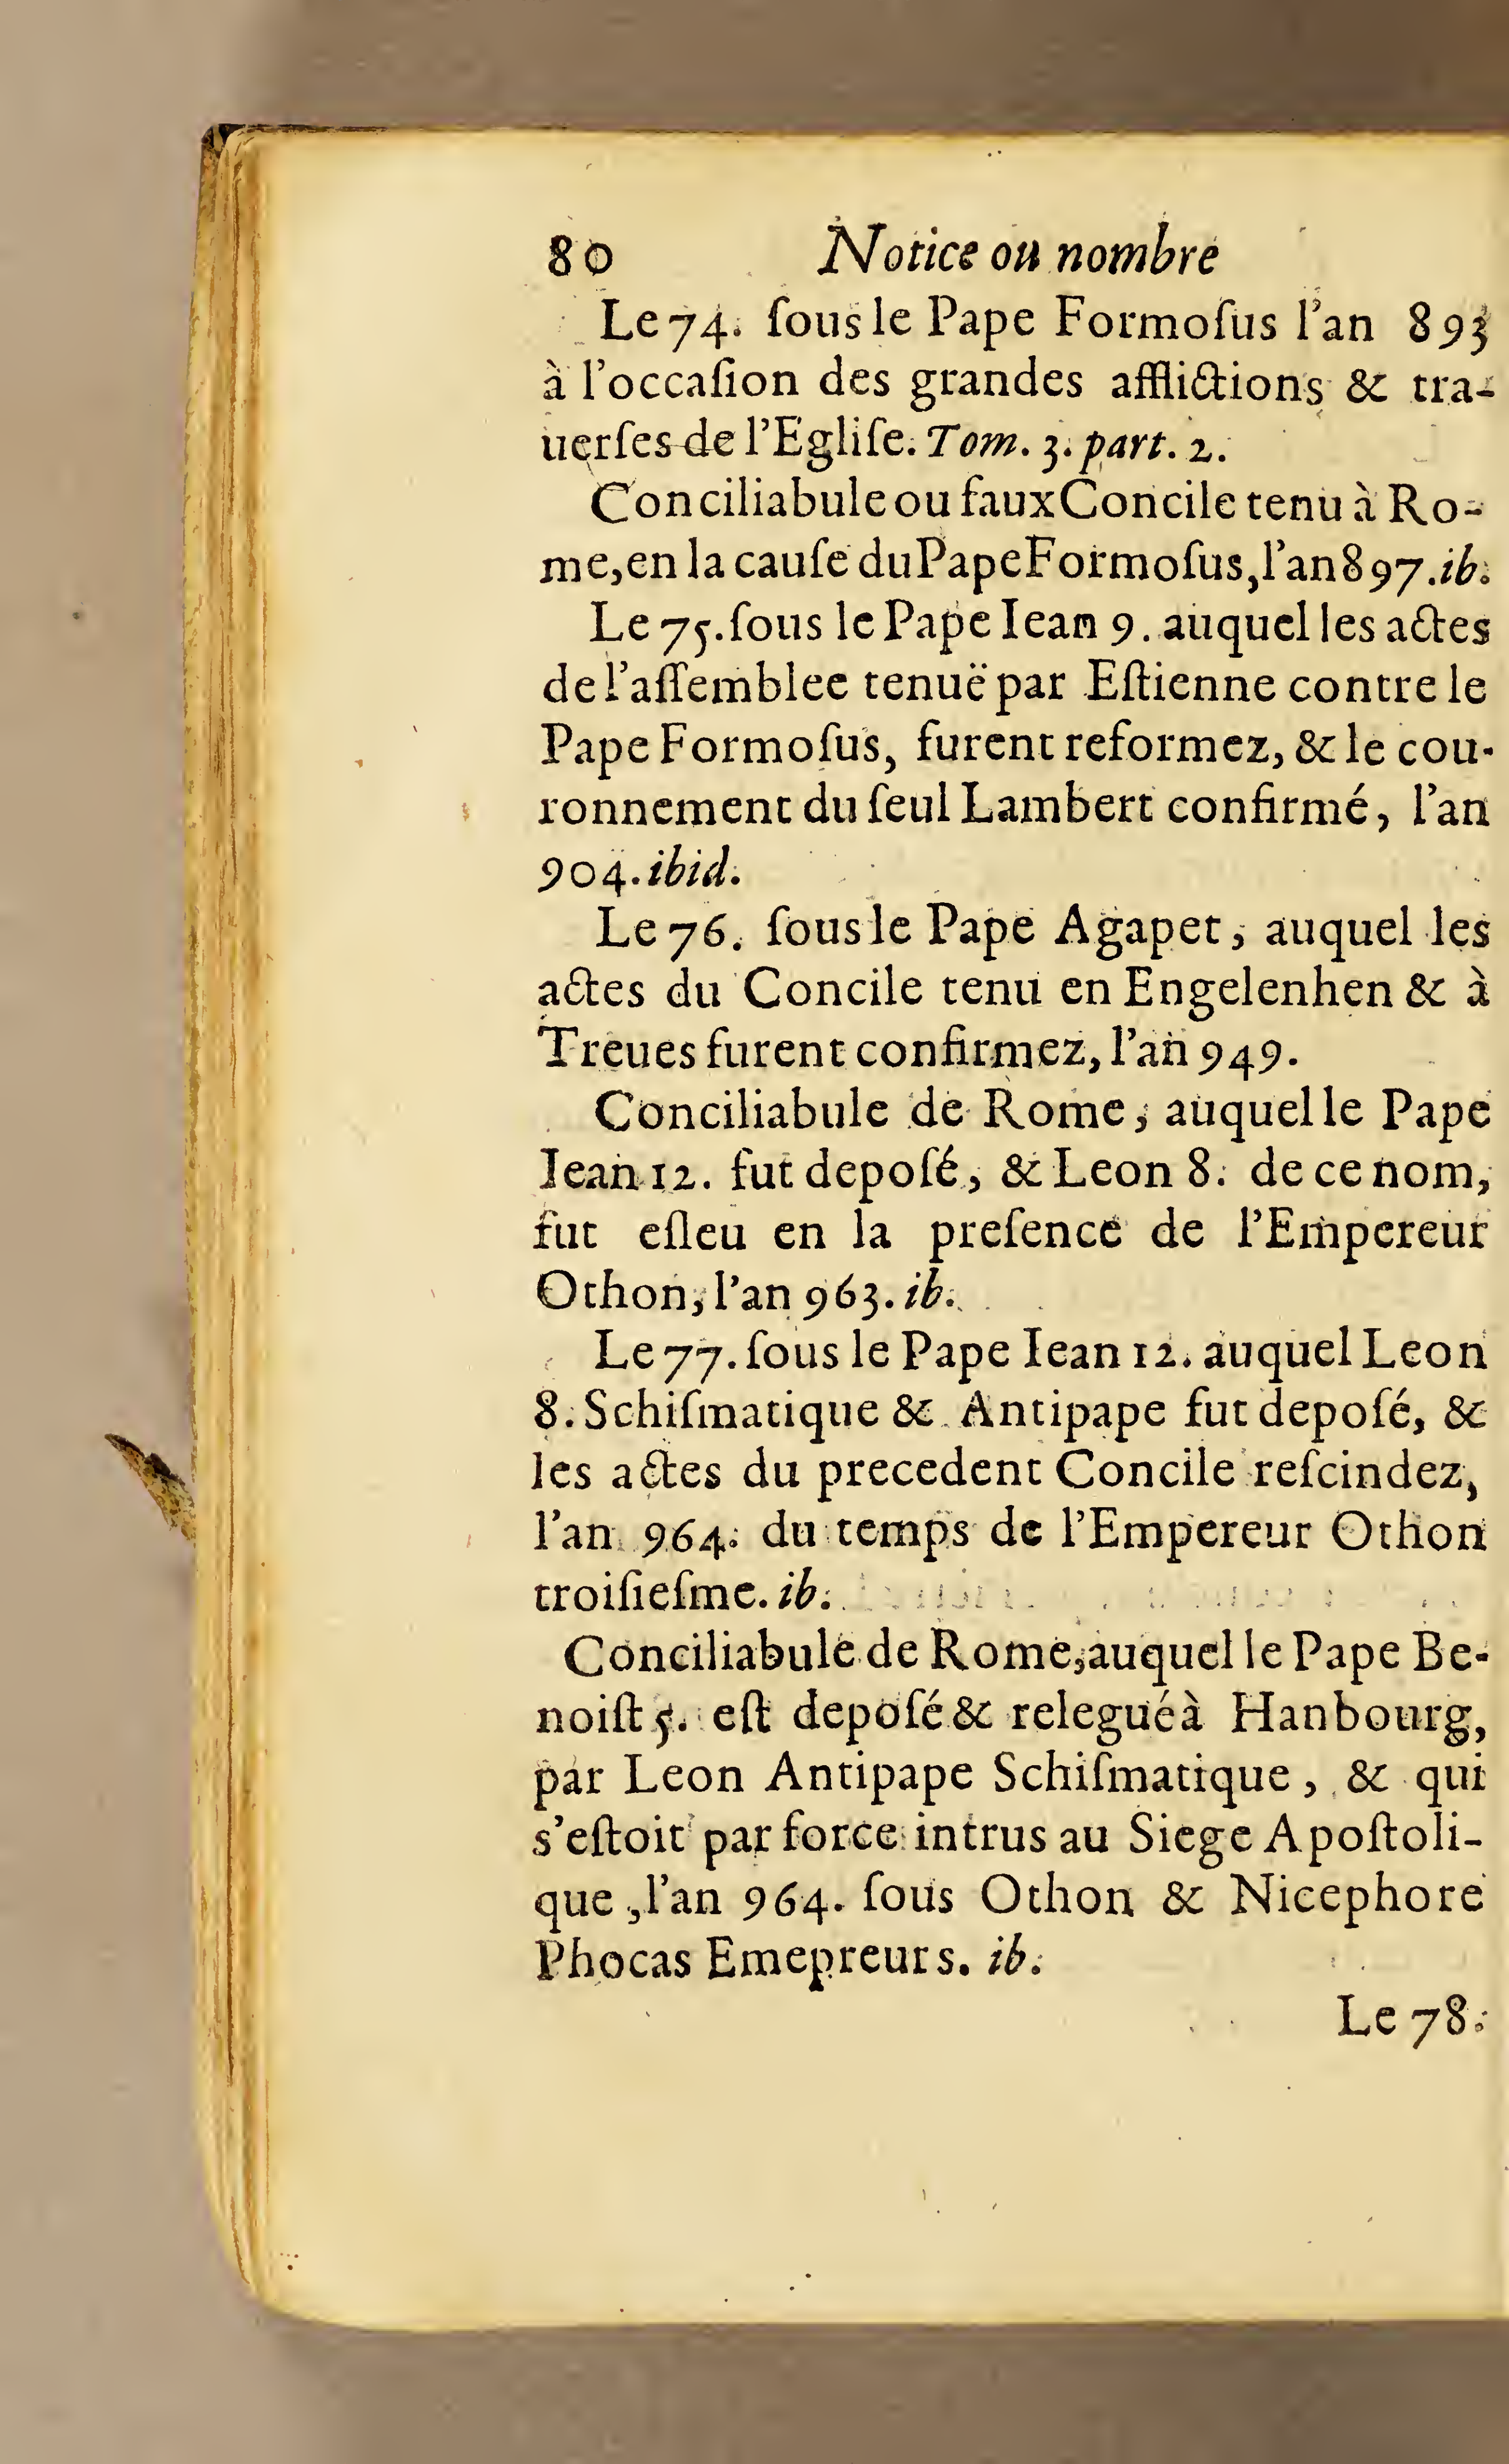 80 Notice ou nombre
Le 74. ſous le Pape Formoſus l'an 893
à l'occaſion des grandes afflictions & tra-
uerſes de l'Egliſe. Tom. 3. part. 2.
Conciliabule ou faux Concile tenu à Ro-
me, en la cauſe du Pape Formoſus, l'an 897. ib.
Le 75. ſous le Pape Iean 9. auquel les actes
de l'aſſemblee tenuë par Eſtienne contre le
Pape Formoſus, furent reformez, & le cou-
ronnement du ſeul Lambert confirmé, l'an
904. ibid.
Le 76. ſous le Pape Agapet, auquel les
actes du Concile tenu en Engelenhen & à
Treues furent confirmez, l'an 949.
Conciliabule de Rome, auquel le Pape
Iean 12. fut depoſé, & Leon 8. de ce nom,
fut eſleu en la preſence de l'Empereur
Othon, l'an 963. ib.
Le 77. ſous le Pape Iean 12. auquel Leon
8. Schiſmatique & Antipape fut depoſé, &
les actes du precedent Concile reſcindez,
l'an 964. du temps de l'Empereur Othon
troiſieſme. ib.
Conciliabule de Rome, auquel le Pape Be-
noiſt 5. eſt depoſé & relegué à Hanbourg,
par Leon Antipape Schiſmatique, & qui
s'eſtoit par force intrus au Siege Apoſtoli-
que, l'an 964. ſous Othon & Nicephore
Phocas Emepreurs. ib.
Le 78.